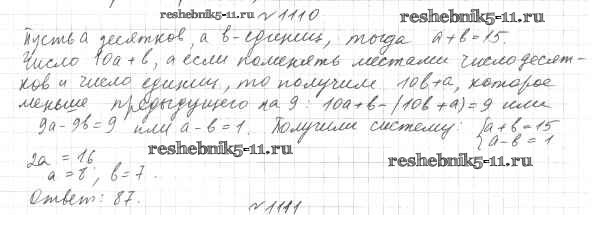 reshebnik5-11.ru № 1110. reshebnik5-11.ru
Пусть а десятков, а в-единиц, тогда a+b=15.
Число 10a+b, а если поменять местами число десят-
ков и число единиц, то получим 10b+a, которое
меньше предыдущего на 9: 10a+b-(10b+a)=9 или
9a-9b=9 или a-b=1. Получили систему: {a+b=15
a-b=1
reshebnik5-11.ru
reshebnik5-11.ru
2a=16
a=8, b=7.
Ответ: 87.
№ 1111